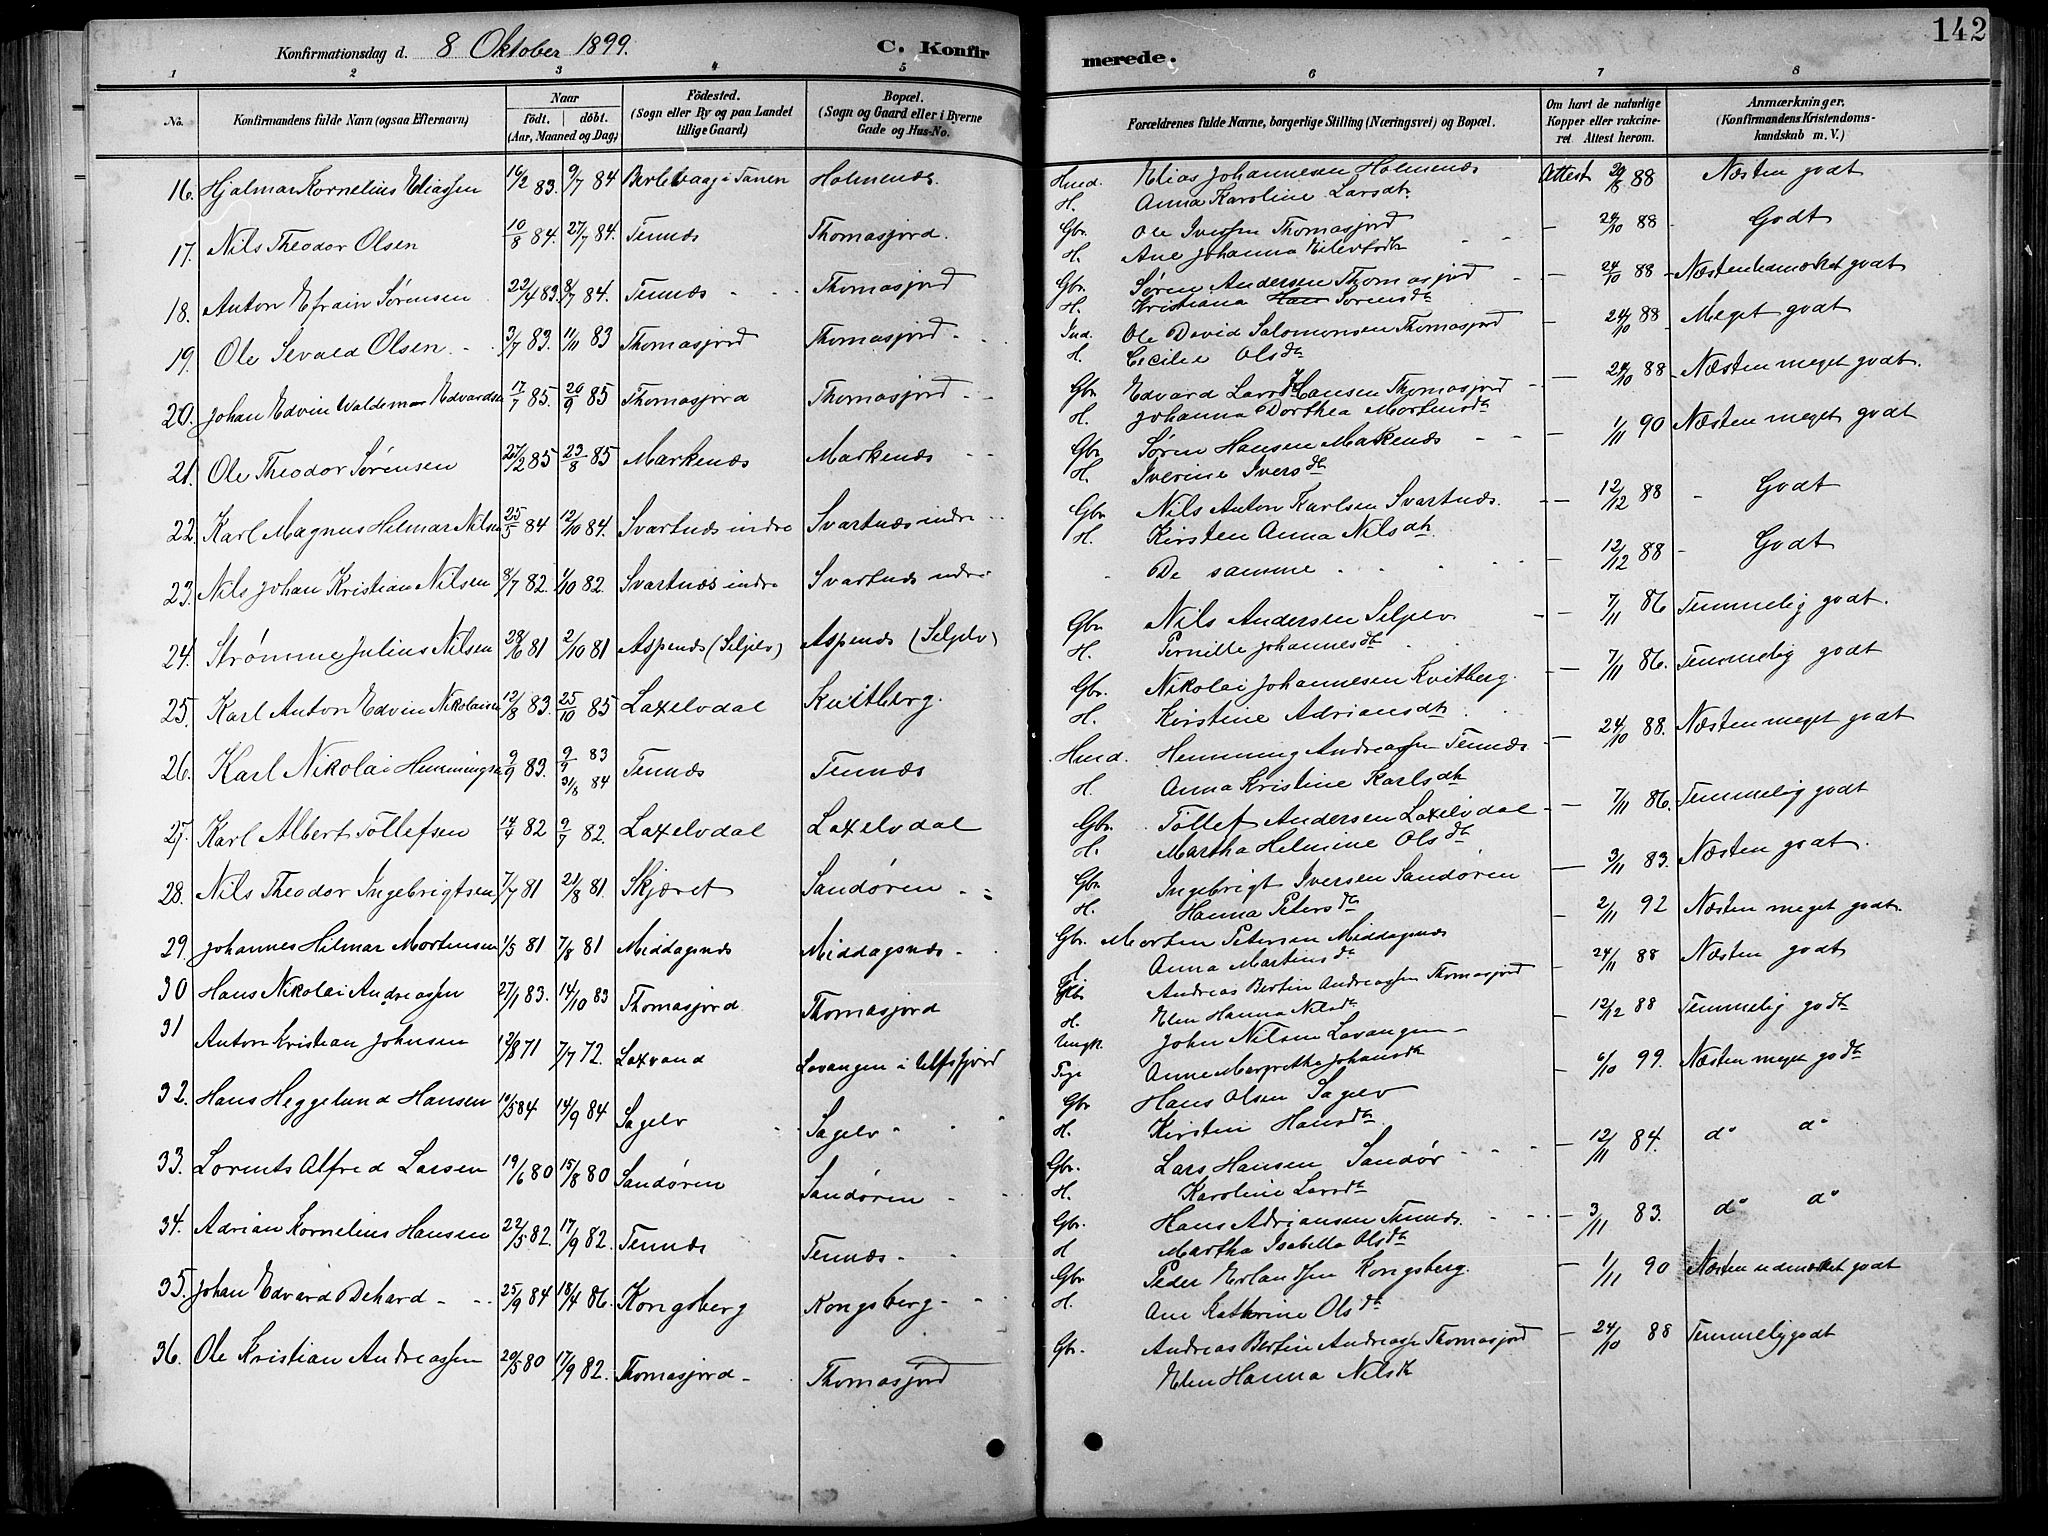 142
Konfirmationsdag d. 8 Oktober 1899. C. Konfirmerede.
1 2 3 4 5 6 7 8
No. Konfirmandens fulde Navn (ogsaa Efternavn) Naar Født. døbt. (Aar, Maaned og Dag) Fødested. (Sogn eller By og paa Landet tillige Gaard) Bopæl. (Sogn og Gaard eller i Byerne Gade og Hus-No. Forældrenes fulde Navne, borgerlige Stilling (Næringsvei) og Bopæl. Om havt de naturlige Kopper eller vakcineret Attest herom. Anmærkninger. (Konfirmandens Kristendomskundskab m. V.)
16. Hjalmar Kornelius Eliassen 16/2 83. 9/7 84 Berlevaag i Tanen Holmenæs Hmd. Elias Johannesen Holmenæs Attest 20/8 88 Næsten godt
H. Anna Karoline Larsdtr
17. Nils Theodor Olsen 10/8 84. 27/7 84. Tennæs Thomasjord. Gbr. Ole Iversen Thomasjord — 24/10 88 Godt
H. Ane Johanna Eilertsdtr
18. Anton Efrain Sørensen 22/4 83. 8/7 84. Tennæs Thomasjord Gbr. Søren Andersen Thomasjord — 24/10 88 Næsten udmærket godt
H. Kristiana Sørensdtr
19. Ole Sevald Olsen 3/7 83. 11/11 83 Thomasjord Thomasjord Ind. Ole David Salomonsen Thomasjord — 24/10 88 Meget godt
H. Cecilie Olsdtr
20. Johan Edvin Waldemar Edvardsen 17/7 85. 20/9 85 Thomasjord Thomasjord Gbr. Edvard Lars Hansen Thomasjord — 24/10 88 Næsten meget godt.
H. Johanna Dorthea Mortensdtr
21. Ole Theodor Sørensen 27/2 85 23/8 85 Markenæs Markenæs Gbr. Søren Hansen Markenæs — 1/11 90 Næsten meget godt
H. Iverine Iversdtr
22. Karl Magnus Hilmar Nilsen 25/5 84 12/10 84. Svartnæs indre Svartnæs indre Gbr. Nils Anton Karlsen Svartnæs. — 12/12 88 Godt
H. Kirsten Anna Nilsdtr.
23. Nils Johan Kristian Nilsen 8/7 82. 1/10 82. Svartnæs indre Svartnæs indre De samme 12/12 88 Godt
24. Strømme Julius Nilsen 28/6 81 2/10 81 Aspenæs (Seljelv) Aspenæs (Seljelv) Gbr. Nils Andersen Seljelv — 7/11 86 Temmelig godt.
H. Pernille Johannesdtr
25. Karl Anton Edvin Nikolaisen 12/8 83. 25/10 85 Laxelvdal Kvitberg. Gbr. Nikolai Johannesen Kvitberg. — 7/11 86. Temmelig godt
H. Kirstine Adriansdtr
26. Karl Nikolai Hemmingsen 9/9 83. 9/9 83 31/8 84 Tennæs Tennæs Hmd. Hemming Andreassen Tennæs — 24/10 88. Næsten meget godt
H. Anna Kristine Karlsdtr
27. Karl Albert Tollefsen 14/4 82 9/7 82. Laxelvdal Laxelvdal Gbr. Tollef Andersen Laxelvdal — 7/11 86. Temmelig godt
H. Martha Helmine Olsdtr
28. Nils Theodor Ingebrigtsen 7/7 81 21/8 81. Skjæret Sandøren Gbr. Ingebrigt Iversen Sandøren — 3/11 83. Næsten godt.
H. Hanna Petersdtr
29. Johannes Hilmar Mortensen 1/5 81 7/8 81 Middagsnæs Middagsnæs Gbr. Morten Petersen Middagsnæs — 2/11 92 Næsten meget godt.
Anna Martinsdtr
30 Hans Nikolai Andreassen 27/1 83. 14/10 83 Thomasjord Thomasjord Gbr. Andreas Bertin Andreassen Thomasjord — 24/11 88 Næsten godt
H. Elen Hanna Nilsdtr
31 Anton Kristian Johnsen 12/8 71 7/7 72. Laxvand Lavangen i Ulfsfjord Ungk. John Nilsen Lavangen — 12/12 88 Temmelig godt
Pige Anne Margrethe Johansdtr
32. Hans Heggelund Hansen 10/5 84 14/9 84 Sagelv Sagelv Gbr. Hans Olsen Sagelv — 6/10 99. Næsten meget godt
H. Kirsten Hansdtr.
33. Lorents Alfred Larsen 19/6 80 15/8 80 Sandøren Sandøren Gbr. Lars Hansen Sandør — 12/11 84. do do
H. Karoline Larsdtr
34. Adrian Kornelius Hansen 22/5 82. 17/9 82. Tennæs Tennæs Gbr. Hans Adriansen Tennæs. — 3/11 83. do do
H Martha Isabella Olsdtr
35. Johan Edvard Dehard 25/9 84 18/4 86. Kongsberg Kongsberg Gbr. Peder Erlandsen Kongsberg. 1/11 90 Næsten udmærket godt
H. Ane Kathrine Olsdtr
36. Ole Kristian Andreassen 20/5 80 17/9 82. Thomasjord Thomasjord Gbr. Andreas Bertin Andreassen Thomasjord — 24/10 88 Temmelig godt
Elen Hanna Nilsdtr